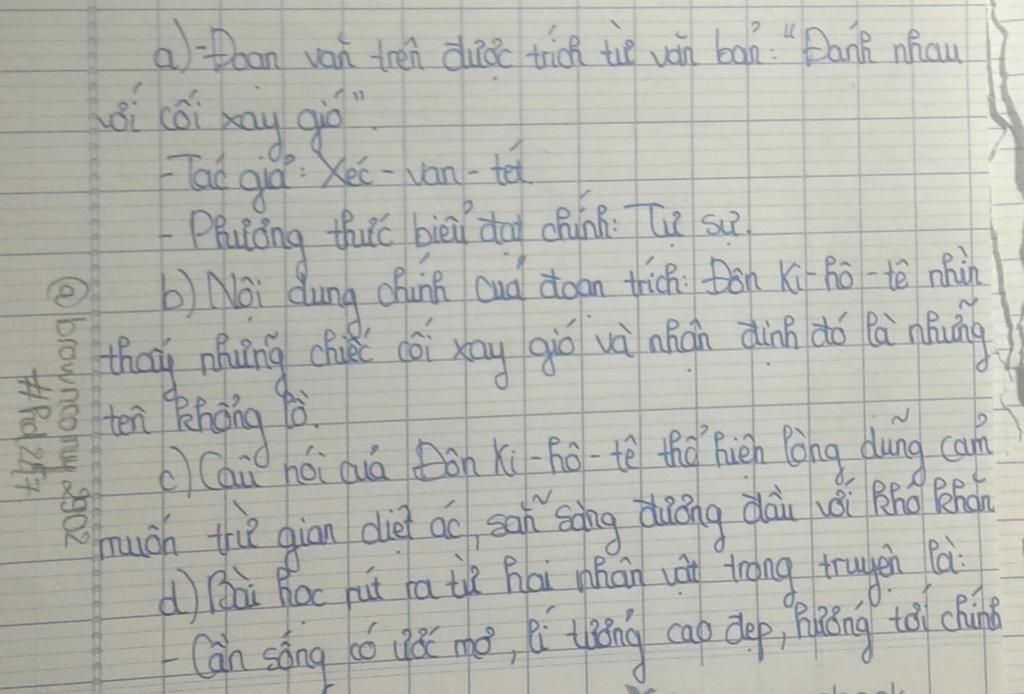 a) - Đoạn văn trên được trích từ văn bản: "Đánh nhau
với cối xay gió"
- Tác giả: Xéc-van-tét
- Phương thức biểu đạt chính: Tự sự.
b) Nội dung chính của đoạn trích: Đôn Ki-hô-tê nhìn
thấy những chiếc cối xay gió và nhận định đó là những
tên khổng lồ.
c) Câu nói của Đôn Ki-hô-tê thể hiện lòng dũng cảm
muốn trừ gian diệt ác, sẵn sàng đương đầu với khó khăn
d) Bài học rút ra từ hai nhân vật trong truyện là:
- Cần sống có ước mơ, lí tưởng cao đẹp, hướng tới chính